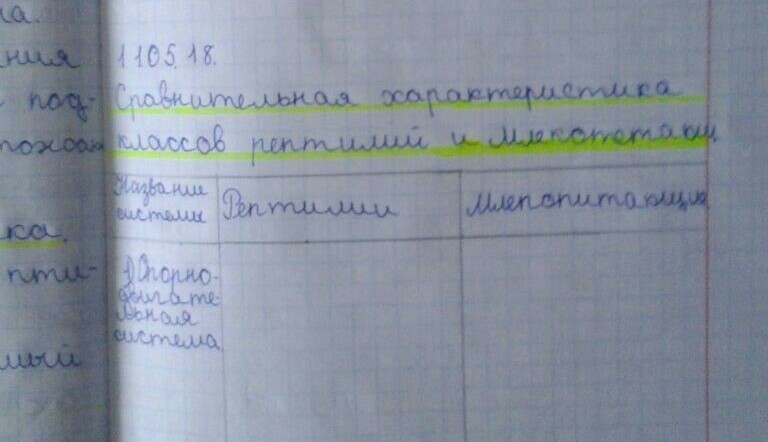 на.
ния
под-
похож
ка.
пти-
мый
1 1 05. 18.
Сравнительная характеристика
классов рептилий и Млекопетающ
Название
системы
Рептилии
Млекопитающие
1) Опорно-
двигате-
льная
система